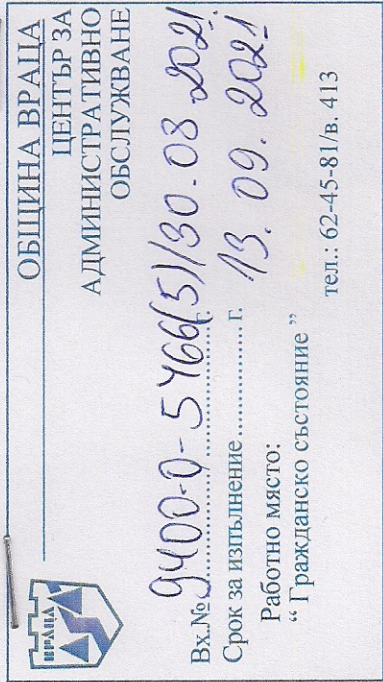 ВРАЦА
ОБЩИНА ВРАЦА
ЦЕНТЪР ЗА
АДМИНИСТРАТИВНО
ОБСЛУЖВАНЕ
Вх.№ 9400-0-5466(5)/30.08.2021 г.
Срок за изпълнение .................. г. 13.09.2021
Работно място:
“ Гражданско състояние ”
тел.: 62-45-81/в. 413